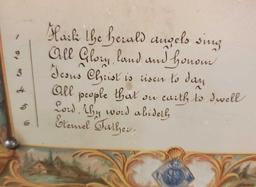 1 Hark the herald angels sing
2 All Glory, laud and honour
3 Jesus Christ is risen to day
4. All people that on earth to dwell
5 Lord, thy word abideth
6. Eternel Father.